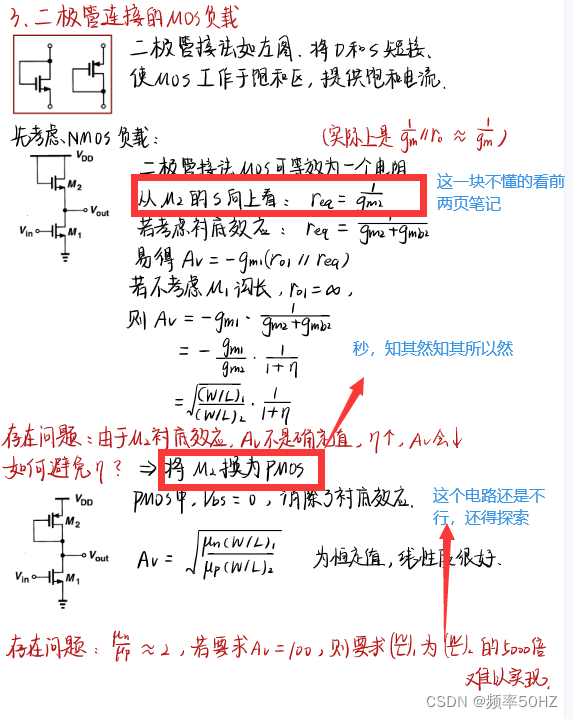 3、二极管连接的MOS负载
二极管接法如左图．将D和S短接、
使MOS工作于饱和区，提供饱和电流．
先考虑NMOS负载：
(实际上是 1/gm // ro ≈ 1/gm )
VDD
M2
Vout
Vin
M1
二极管接法MOS可等效为一个电阻
从M2的S向上看： req = 1/gm2
这一块不懂的看前
两页笔记
若考虑衬底效应： req = 1/(gm2+gmb2)
易得 Av = -gm1(ro1 // req)
若不考虑M1沟长，ro1 = ∞，
则 Av = -gm1 · 1/(gm2+gmb2)
= - gm1/gm2 · 1/(1+η)
秒，知其然知其所以然
= √((W/L)1/(W/L)2) · 1/(1+η)
存在问题：由于M2衬底效应，Av不是确定值，η↑，Av会↓
如何避免η？ ⇒ 将M2换为PMOS
PMOS中，Vbs = 0，消除了衬底效应．
这个电路还是不
行，还得探索
VDD
M2
Vout
Vin
M1
Av = √(μn(W/L)1/μp(W/L)2) 为恒定值，线性度很好．
存在问题：μn/μp ≈ 2，若要求Av=100，则要求(W/L)1为(W/L)2的5000倍
难以实现．
CSDN @频率50HZ